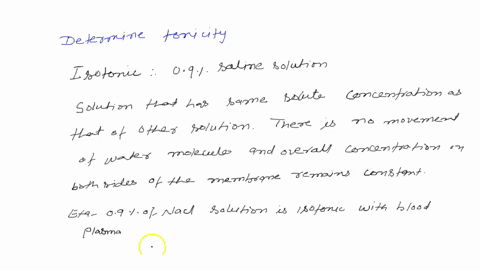 Determine tonicity
Isotonic :- 0.9%. Saline solution
Solution that has same solute concentration as
that of other solution. There is no movement
of water molecules and overall concentration on
both sides of the membrane remains constant.
0.9%. of NaCl solution is isotonic with blood
plasma